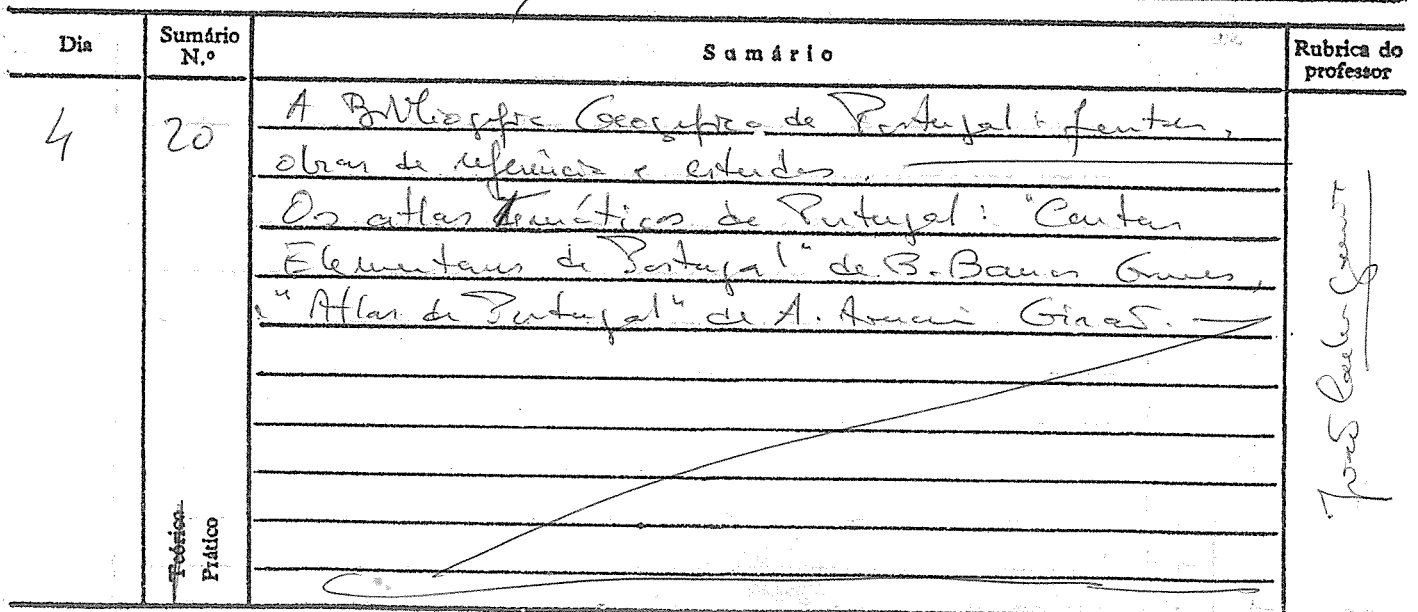 Dia
Sumário N.º
Sumário
Rubrica do professor
4
20
A Bibliografia Geográfica de Portugal: fontes,
obras de referência e estudos.
Os atlas temáticos de Portugal: "Cartas
Elementares de Portugal" de B. Barros Gomes,
"Atlas de Portugal" de A. Amorim Girão.
Teórico
Prático
João